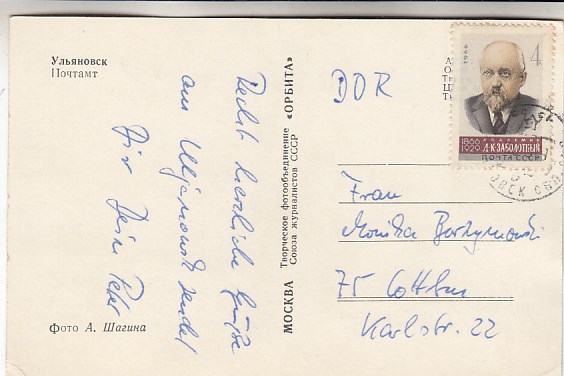 Ульяновск
Почтамт
Recht herzliche Grüße
aus Uljanowsk sendet
Dir Dein Peter
Фото А. Шагина
МОСКВА Творческое фотообъединение «ОРБИТА»
Союза журналистов СССР
DDR
1966
4
АКАДЕМИК
1866
1929
Д·К·ЗАБОЛОТНЫЙ
ПОЧТА СССР
Frau
Monika
75 Cottbus
Karlstr. 22